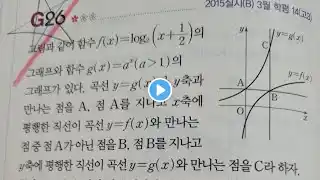 2015실시(B) 3월 학평 14(고3)
G26
그림과 같이 함수 f(x)=log₂(x+1/2)의
그래프와 함수 g(x)=aˣ(a>1)의
그래프가 있다. 곡선 y=g(x)가 y축과
만나는 점을 A, 점 A를 지나고 x축에
평행한 직선이 곡선 y=f(x)와 만나는
점 중 점 A가 아닌 점을 B, 점 B를 지나고
y축에 평행한 직선이 곡선 y=g(x)와 만나는 점을 C라 하자.
y
C
y=g(x)
y=f(x)
A
B
O
x